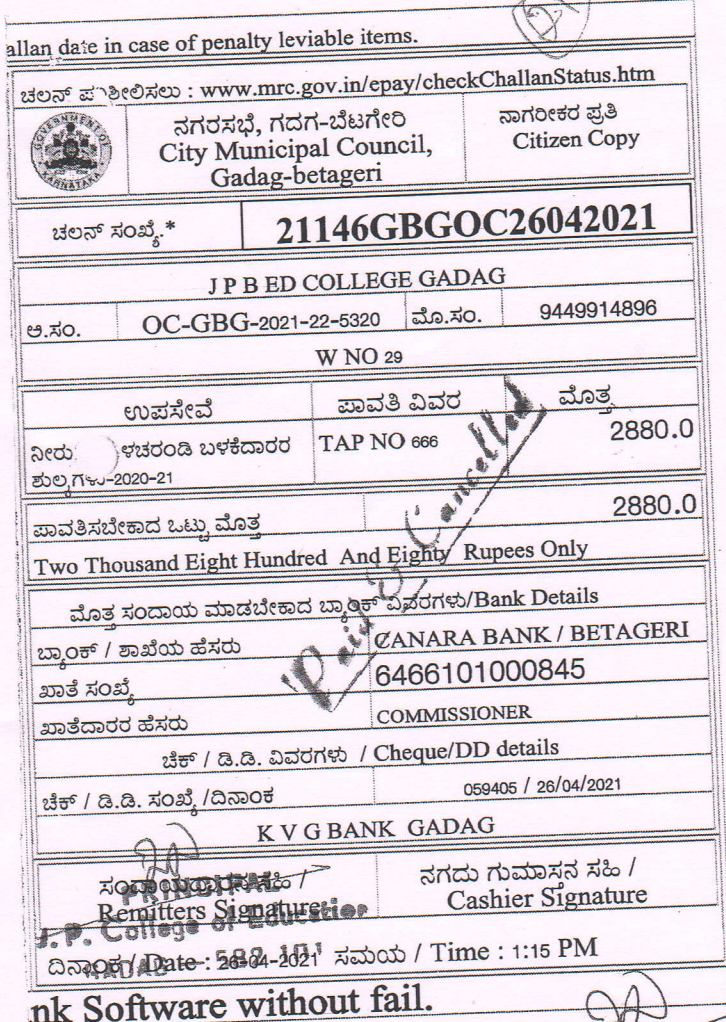 allan date in case of penalty leviable items.
ಚಲನ್ ಪರಿಶೀಲಿಸಲು : www.mrc.gov.in/epay/checkChallanStatus.htm
GOVERNMENT OF KARNATAKA
ನಗರಸಭೆ, ಗದಗ-ಬೆಟಗೇರಿ
City Municipal Council,
Gadag-betageri
ನಾಗರೀಕರ ಪ್ರತಿ
Citizen Copy
ಚಲನ್ ಸಂಖ್ಯೆ.* 21146GBGOC26042021
J P B ED COLLEGE GADAG
ಅ.ಸಂ. OC-GBG-2021-22-5320 ಮೊ.ಸಂ. 9449914896
W NO 29
ಉಪಸೇವೆ ಪಾವತಿ ವಿವರ ಮೊತ್ತ
ನೀರು ಳಚರಂಡಿ ಬಳಕೆದಾರರ TAP NO 666 2880.0
ಶುಲ್ಕಗಳು-2020-21
ಪಾವತಿಸಬೇಕಾದ ಒಟ್ಟು ಮೊತ್ತ 2880.0
Two Thousand Eight Hundred And Eighty Rupees Only
Paid & Cancelled
ಮೊತ್ತ ಸಂದಾಯ ಮಾಡಬೇಕಾದ ಬ್ಯಾಂಕ್ ವಿವರಗಳು/Bank Details
ಬ್ಯಾಂಕ್ / ಶಾಖೆಯ ಹೆಸರು CANARA BANK / BETAGERI
ಖಾತೆ ಸಂಖ್ಯೆ 6466101000845
ಖಾತೆದಾರರ ಹೆಸರು COMMISSIONER
ಚೆಕ್ / ಡಿ.ಡಿ. ವಿವರಗಳು / Cheque/DD details
ಚೆಕ್ / ಡಿ.ಡಿ. ಸಂಖ್ಯೆ /ದಿನಾಂಕ 059405 / 26/04/2021
K V G BANK GADAG
ಸಂದಾಯದಾರನ ಸಹಿ /
Remitters Signature
ನಗದು ಗುಮಾಸನ ಸಹಿ /
Cashier Signature
PRINCIPAL
J. P. College of Education
GADAG - 582 101
ದಿನಾಂಕ / Date : 26-04-2021 ಸಮಯ / Time : 1:15 PM
nk Software without fail.